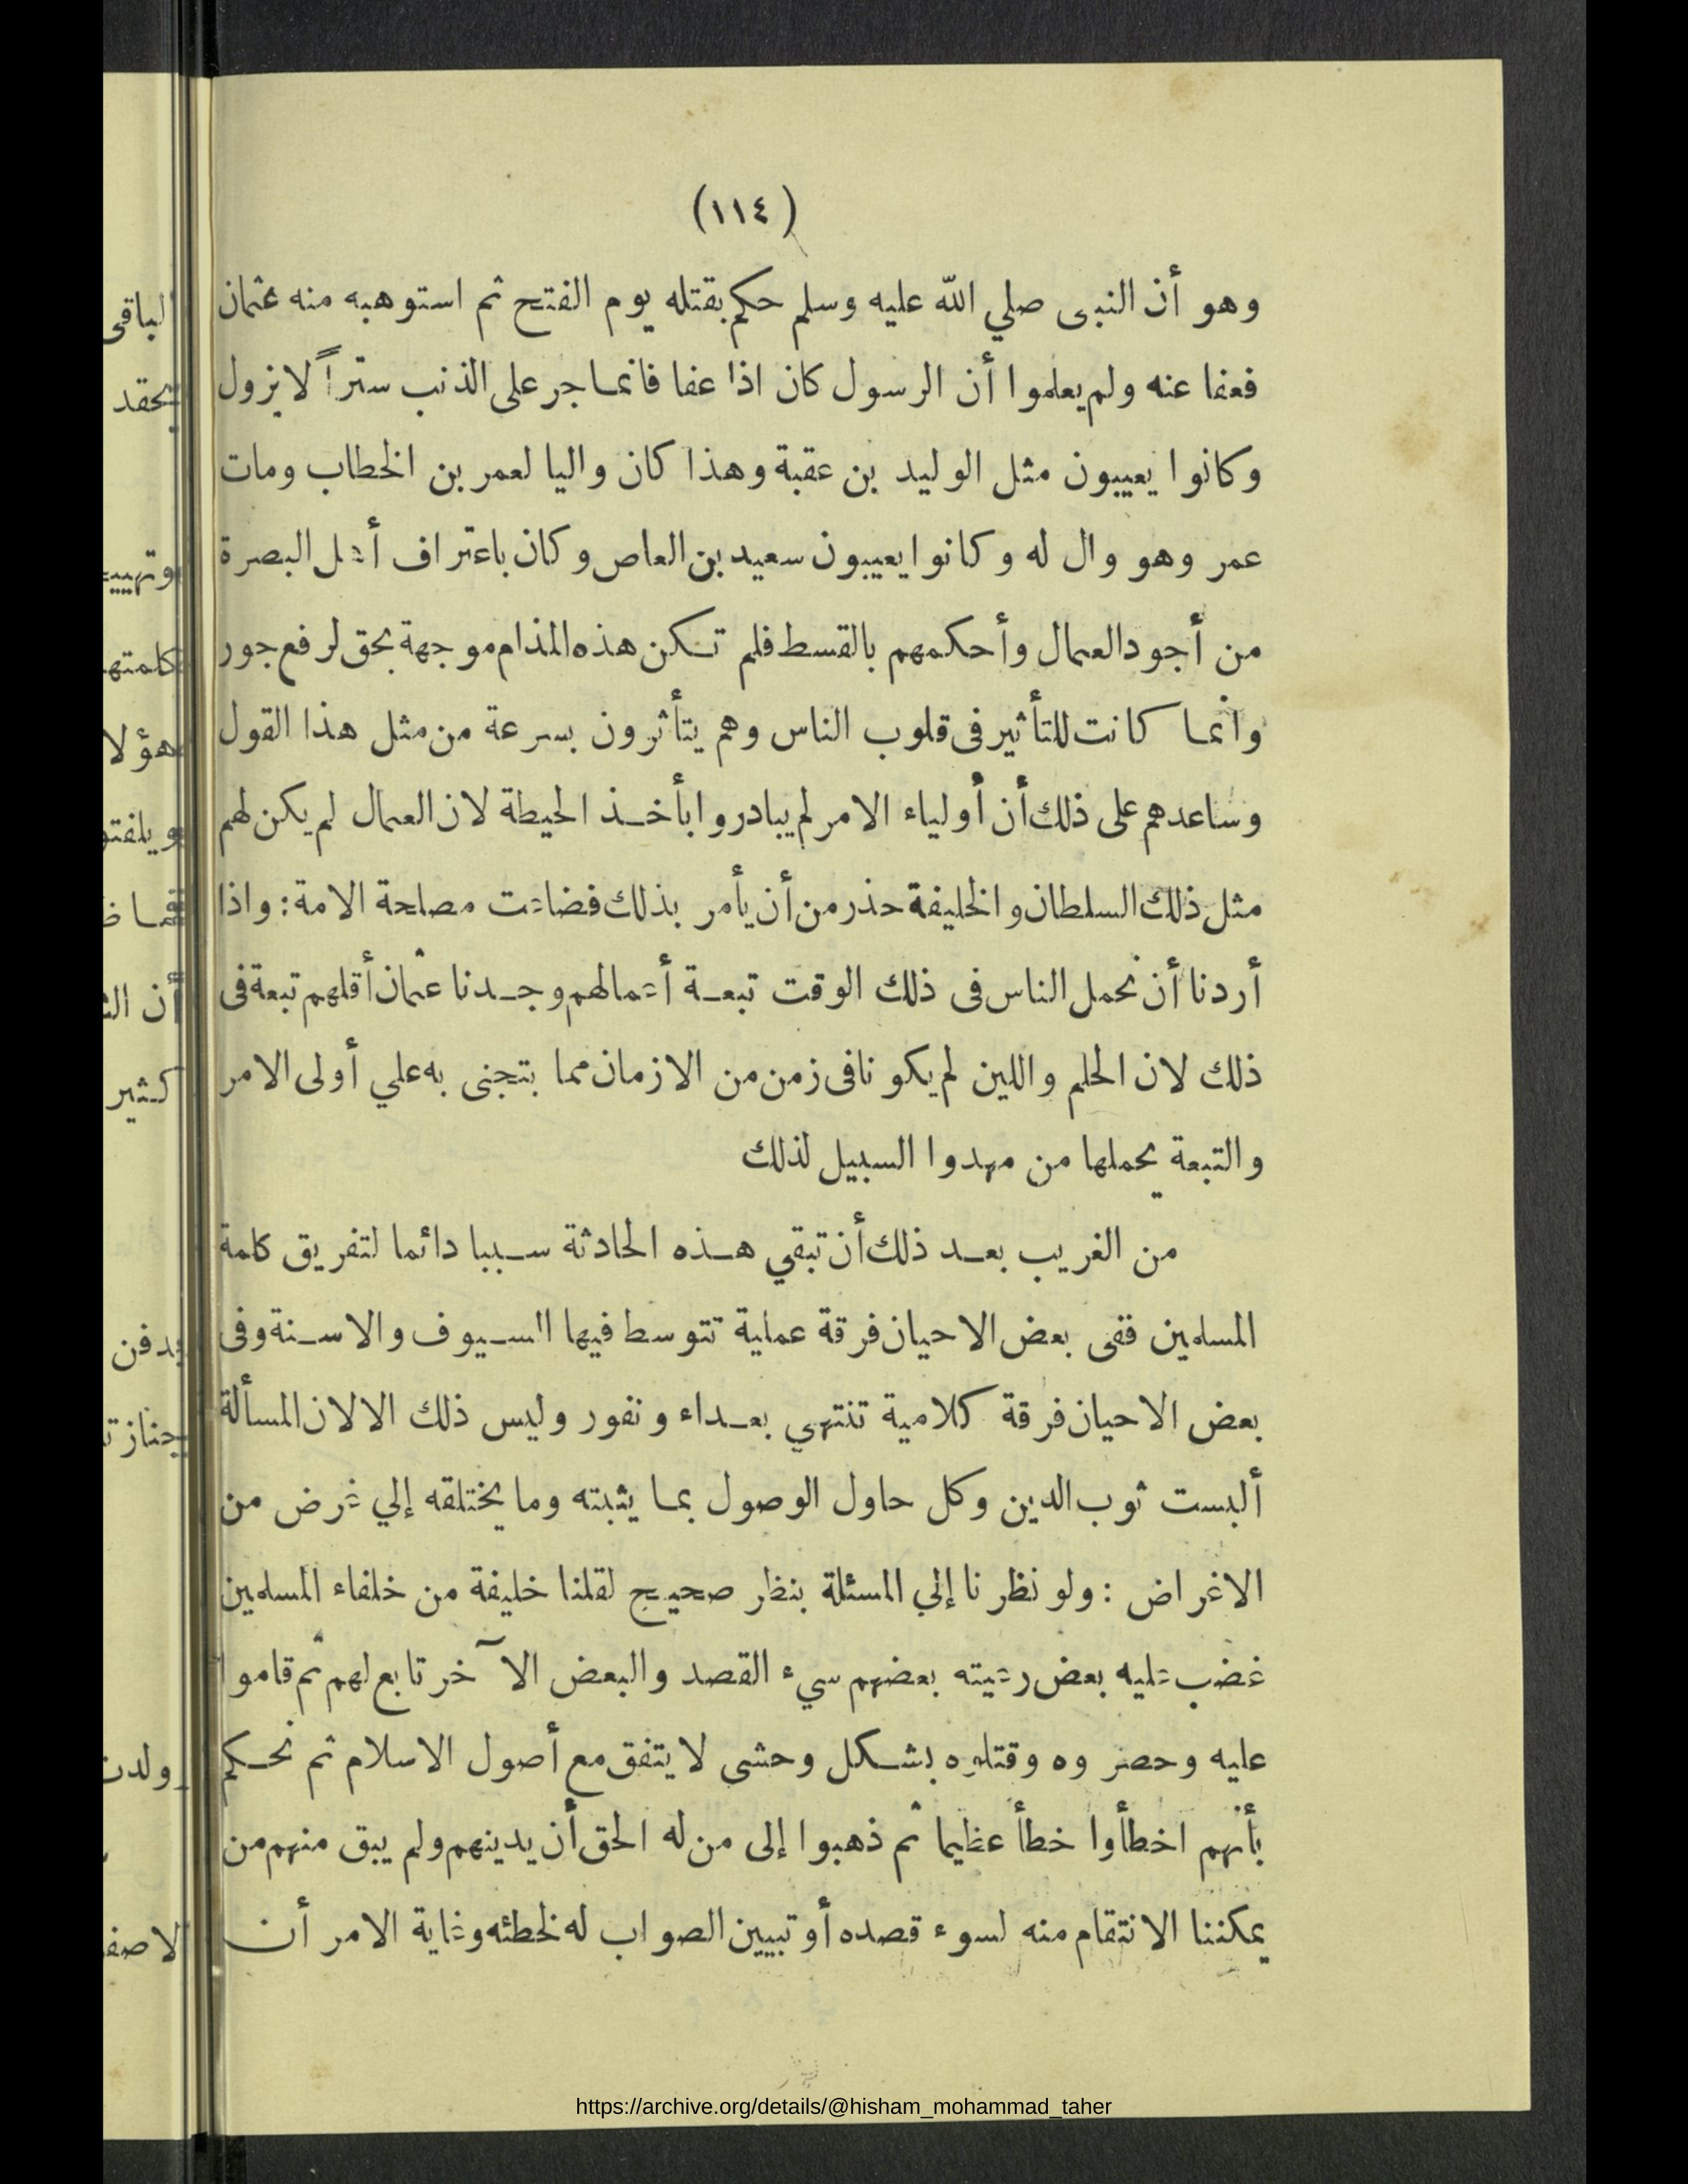 (١١٤)
وهو أن النبى صلي الله عليه وسلم حكم بقتله يوم الفتح ثم استوهبه منه عثمان
فعفا عنه ولم يعلموا أن الرسول كان اذا عفا فانما جر على الذنب ستراً لا يزول
وكانوا يعيبون مثل الوليد بن عقبة وهذا كان واليا لعمر بن الخطاب ومات
عمر وهو وال له وكانوا يعيبون سعيد بن العاص وكان باعتراف أهل البصرة
من أجود العمال وأحكمهم بالقسط فلم تكن هذه المذام موجهة بحق لرفع جور
وانما كانت للتأثير فى قلوب الناس وهم يتأثرون بسرعة من مثل هذا القول
وساعدهم على ذلك أن أولياء الامر لم يبادروا بأخذ الحيطة لان العمال لم يكن لهم
مثل ذلك السلطان والخليفة حذر من أن يأمر بذلك فضاعت مصلحة الامة : واذا
أردنا أن نحمل الناس فى ذلك الوقت تبعة أعمالهم وجدنا عثمان أقلهم تبعة فى
ذلك لان الحلم واللين لم يكونا فى زمن من الازمان مما يتجنى به علي أولى الامر
والتبعة يحملها من مهدوا السبيل لذلك
من الغريب بعد ذلك أن تبقي هذه الحادثة سببا دائما لتفريق كلمة
المسلمين ففى بعض الاحيان فرقة عملية تتوسط فيها السيوف والاسنة وفى
بعض الاحيان فرقة كلامية تنتهي بعداء ونفور وليس ذلك الا لان المسألة
ألبست ثوب الدين وكل حاول الوصول بما يثبته وما يختلقه إلي غرض من
الاغراض : ولو نظرنا إلي المسئلة بنظر صحيح لقلنا خليفة من خلفاء المسلمين
غضب عليه بعض رعيته بعضهم سيء القصد والبعض الآخر تابع لهم ثم قاموا
عليه وحصروه وقتلوه بشكل وحشى لا يتفق مع أصول الاسلام ثم نحكم
بأنهم اخطأوا خطأ عظيما ثم ذهبوا إلى من له الحق أن يدينهم ولم يبق منهم من
يمكننا الانتقام منه لسوء قصده أو تبيين الصواب له لخطئه وغاية الامر أن
https://archive.org/details/@hisham_mohammad_taher